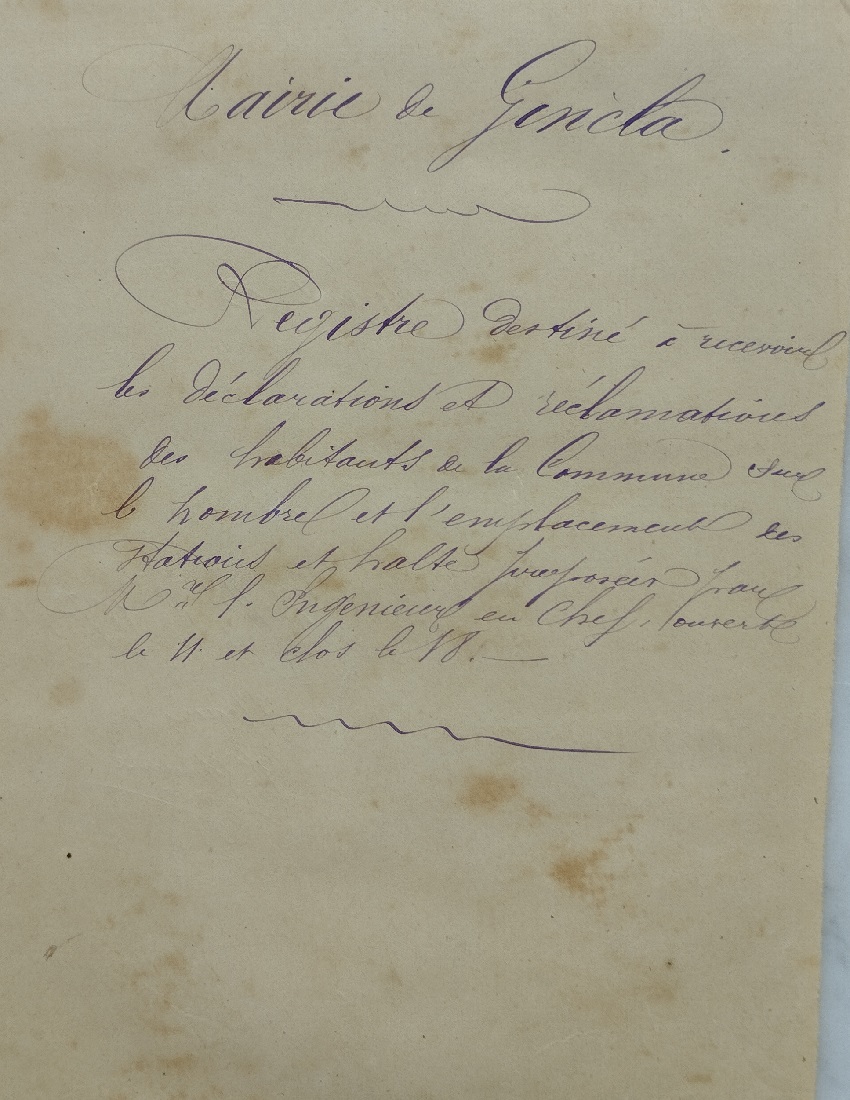 Mairie de Gincla.
Registre destiné à recevoir
les déclarations et réclamations
des habitants de la Commune sur
le nombre et l'emplacement des
stations et halte proposées par
Mr l'Ingenieur en Chef, ouvert
le 11 et clos le 18.